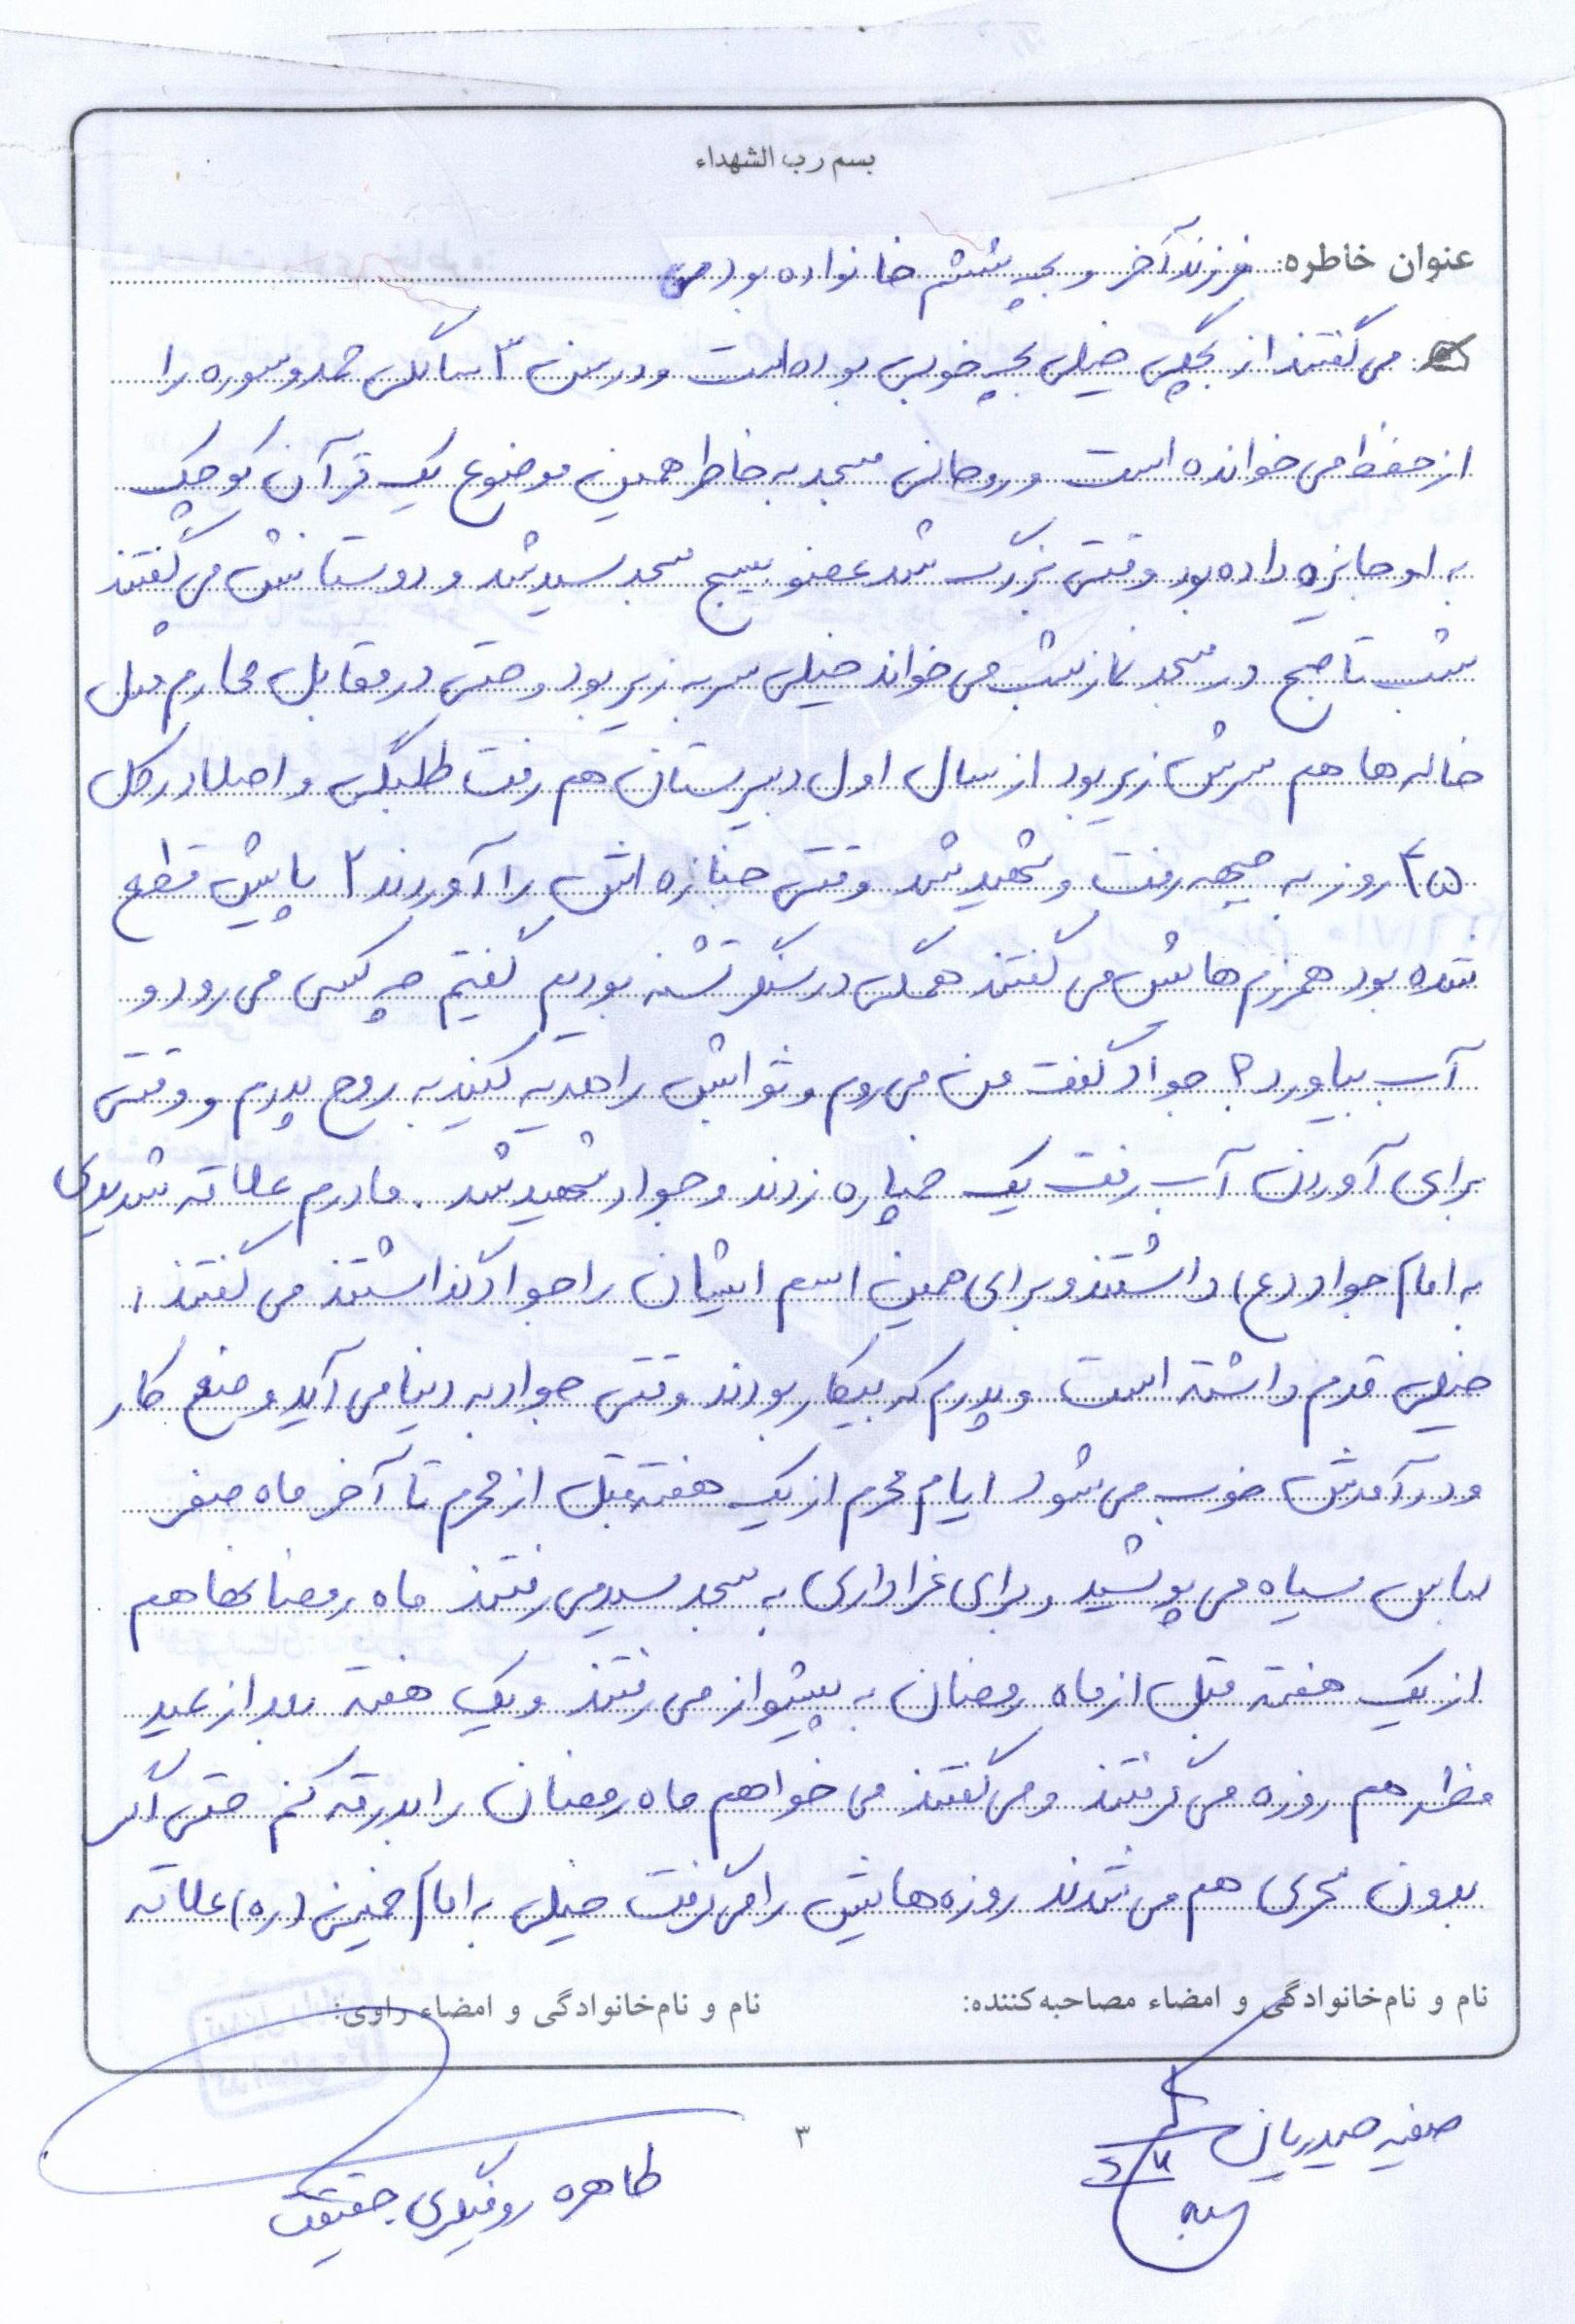 بسم رب الشهداء
عنوان خاطره: فرزند آخر و بچه ششم خانواده بود
می گفتند از بچگی خیلی بچه خوبی بوده است و در سن ۳ سالگی حمد و سوره را
از حفظ می خوانده است و روحانی مسجد به خاطر همین موضوع یک قرآن کوچک
به او جایزه داده بود وقتی بزرگ شد عضو بسیج مسجد سید شد و دوستانش می گفتند
شب تا صبح در مسجد نماز شب می خواند خیلی سر به زیر بود و حتی در مقابل محارم مثل
خاله ها هم سرش زیر بود از سال اول دبیرستان هم رفت طلبگی و اصلا در کل
۴۵ روز به جبهه رفت و شهید شد وقتی جنازه اش را آوردند ۲ پایش قطع
شده بود همرزم هایش می گفتند همگی در سنگر تشنه بودیم گفتیم چه کسی می رود و
آب بیاورد؟ جواد گفت من می روم و ثوابش را هدیه کنید به روح پدرم و وقتی
برای آوردن آب رفت یک خمپاره زدند و جواد شهید شد. مادرم علاقه شدیدی
به امام جواد (ع) داشتند و برای همین اسم ایشان را جواد گذاشتند می گفتند:
خیلی قدم داشته است و پدرم که بیکار بودند وقتی جواد به دنیا می آید وضع کار
و درآمدش خوب می شود ایام محرم از یک هفته قبل از محرم تا آخر ماه صفر
لباس سیاه می پوشید و برای عزاداری به مسجد سید می رفتند ماه رمضانها هم
از یک هفته قبل از ماه رمضان به پیشواز می رفتند و یک هفته بعد از عید
فطر هم روزه می گرفتند و می گفتند می خواهم ماه رمضان را بدرقه کنم حتی اگر
بدون سحری هم می شدند روزه هایش را می گرفت خیلی به امام خمینی (ره) علاقه
نام و نام‌خانوادگی و امضاء مصاحبه‌کننده:
نام و نام‌خانوادگی و امضاء راوی:
صفیه حیدریان
طاهره حقیقت
۳